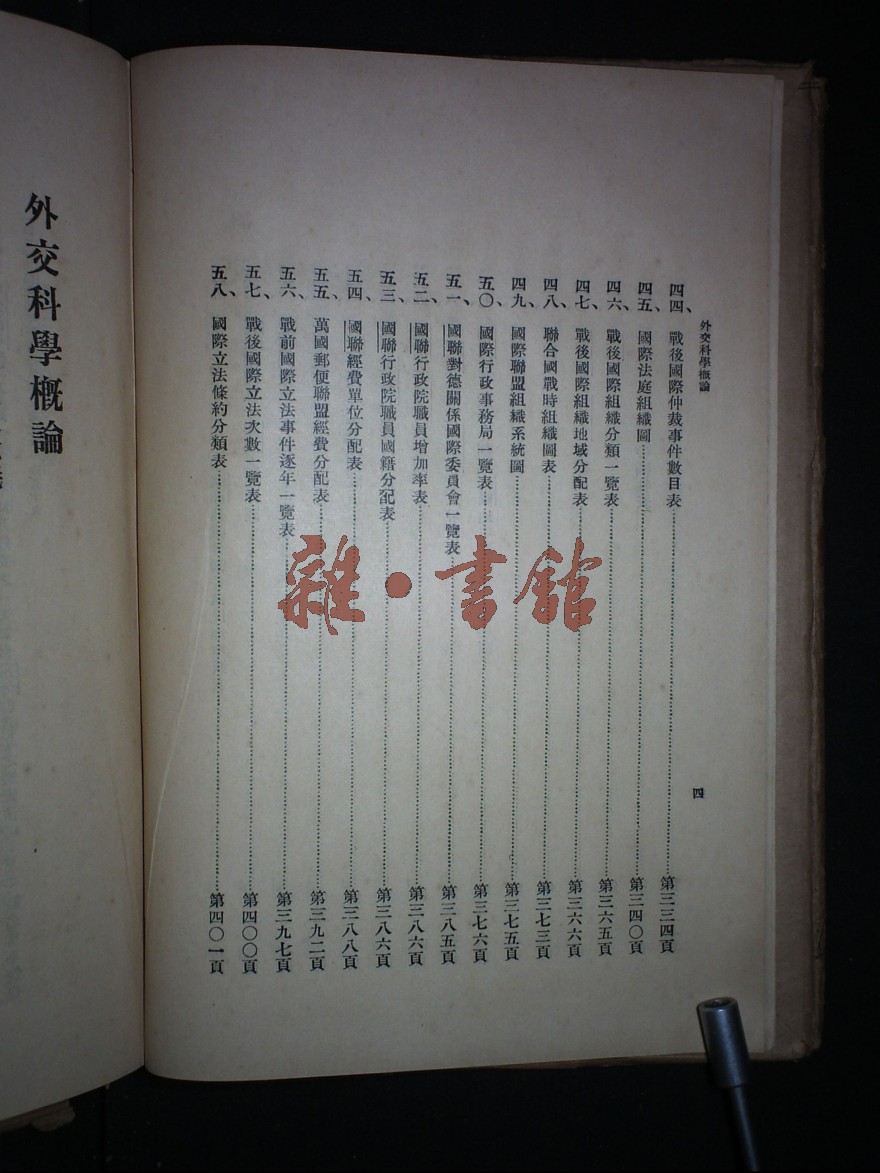 外交科學概論
四
四四、戰後國際仲裁事件數目表……第三三四頁
四五、國際法庭組織圖……第三四〇頁
四六、戰後國際組織分類一覽表……第三六五頁
四七、戰後國際組織地域分配表……第三六六頁
四八、聯合國戰時組織圖表……第三七三頁
四九、國際聯盟組織系統圖……第三七五頁
五〇、國際行政事務局一覽表……第三七六頁
五一、國聯對德關係國際委員會一覽表……第三八五頁
五二、國聯行政院職員增加率表……第三八六頁
五三、國聯行政院職員國籍分配表……第三八六頁
五四、國聯經費單位分配表……第三八八頁
五五、萬國郵便聯盟經費分配表……第三九二頁
五六、戰前國際立法事件逐年一覽表……第三九七頁
五七、戰後國際立法次數一覽表……第四〇〇頁
五八、國際立法條約分類表……第四〇一頁
外交科學概論
雜·書館